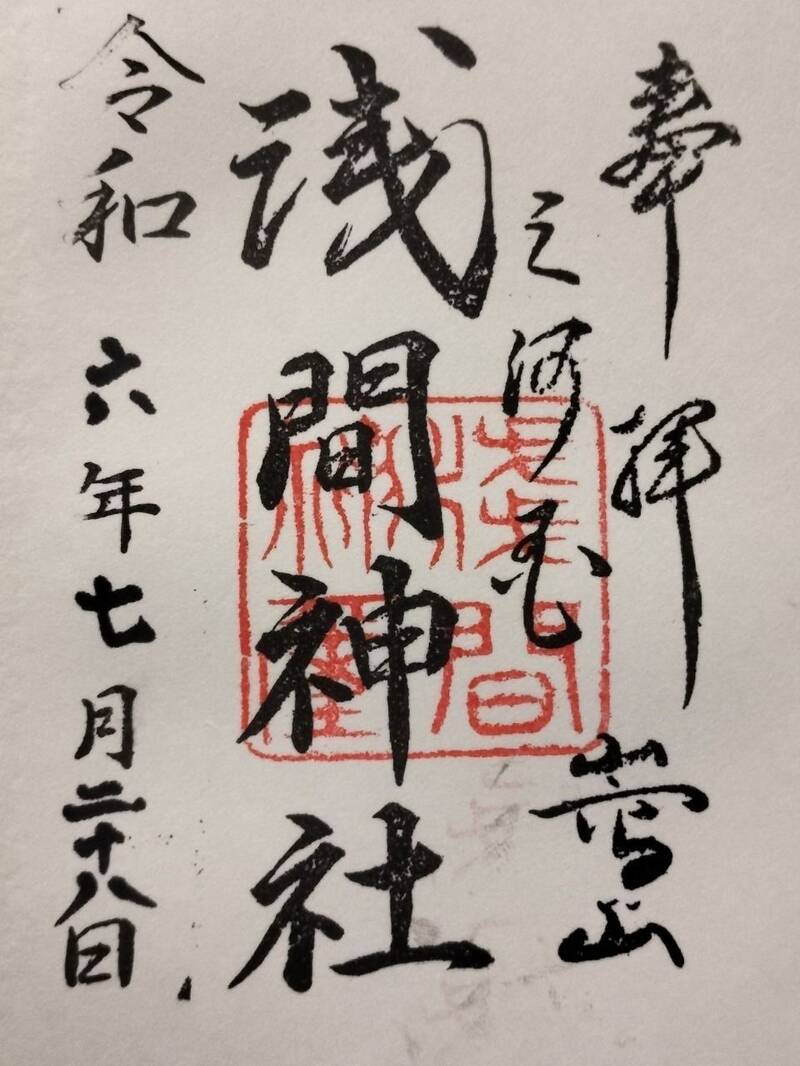 奉拝
三河国 嵩山
浅間神社
令和六年七月二十八日